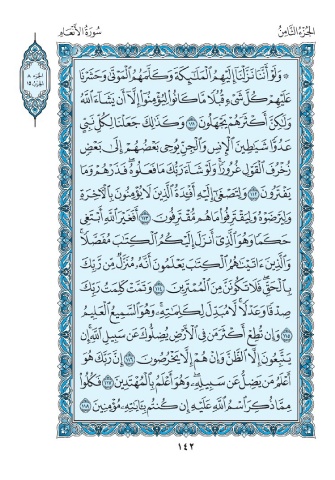 الجزء الثامن
سورة الأنعام
الجزء ٨
الحزب ١٥
۞ وَلَوْ أَنَّنَا نَزَّلْنَا إِلَيْهِمُ الْمَلَٰٓئِكَةَ وَكَلَّمَهُمُ الْمَوْتَىٰ وَحَشَرْنَا
عَلَيْهِمْ كُلَّ شَىْءٍ قُبُلًا مَّا كَانُوا۟ لِيُؤْمِنُوٓا۟ إِلَّآ أَن يَشَآءَ اللَّهُ
وَلَٰكِنَّ أَكْثَرَهُمْ يَجْهَلُونَ ١١١ وَكَذَٰلِكَ جَعَلْنَا لِكُلِّ نَبِىٍّ
عَدُوًّا شَيَٰطِينَ الْإِنسِ وَالْجِنِّ يُوحِى بَعْضُهُمْ إِلَىٰ بَعْضٍ
زُخْرُفَ الْقَوْلِ غُرُورًا ۚ وَلَوْ شَآءَ رَبُّكَ مَا فَعَلُوهُ ۖ فَذَرْهُمْ وَمَا
يَفْتَرُونَ ١١٢ وَلِتَصْغَىٰٓ إِلَيْهِ أَفْـِٔدَةُ الَّذِينَ لَا يُؤْمِنُونَ بِالْءَاخِرَةِ
وَلِيَرْضَوْهُ وَلِيَقْتَرِفُوا۟ مَا هُم مُّقْتَرِفُونَ ١١٣ أَفَغَيْرَ اللَّهِ أَبْتَغِى
حَكَمًا وَهُوَ الَّذِىٓ أَنزَلَ إِلَيْكُمُ الْكِتَٰبَ مُفَصَّلًا ۚ
وَالَّذِينَ ءَاتَيْنَٰهُمُ الْكِتَٰبَ يَعْلَمُونَ أَنَّهُۥ مُنَزَّلٌ مِّن رَّبِّكَ
بِالْحَقِّ ۖ فَلَا تَكُونَنَّ مِنَ الْمُمْتَرِينَ ١١٤ وَتَمَّتْ كَلِمَتُ رَبِّكَ
صِدْقًا وَعَدْلًا ۚ لَّا مُبَدِّلَ لِكَلِمَٰتِهِۦ ۚ وَهُوَ السَّمِيعُ الْعَلِيمُ
١١٥ وَإِن تُطِعْ أَكْثَرَ مَن فِى الْأَرْضِ يُضِلُّوكَ عَن سَبِيلِ اللَّهِ ۚ إِن
يَتَّبِعُونَ إِلَّا الظَّنَّ وَإِنْ هُمْ إِلَّا يَخْرُصُونَ ١١٦ إِنَّ رَبَّكَ هُوَ
أَعْلَمُ مَن يَضِلُّ عَن سَبِيلِهِۦ ۖ وَهُوَ أَعْلَمُ بِالْمُهْتَدِينَ ١١٧ فَكُلُوا۟
مِمَّا ذُكِرَ اسْمُ اللَّهِ عَلَيْهِ إِن كُنتُم بِـَٔايَٰتِهِۦ مُؤْمِنِينَ ١١٨
١٤٢